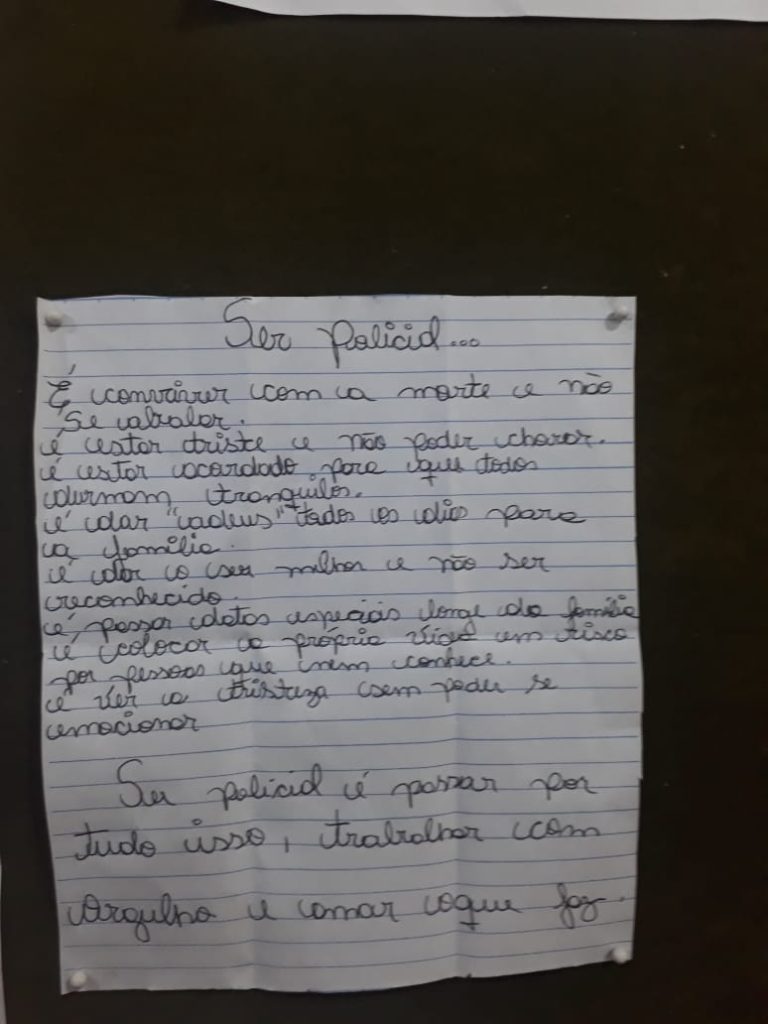 Ser policial...
É conviver com a morte e não
se abalar.
é estar triste e não poder chorar.
é estar acordado para que todos
durmam tranquilos.
é dar "adeus" todos os dias para
a família.
é dar o seu melhor e não ser
reconhecido.
é passar datas especiais longe da família
é colocar a própria vida em risco
por pessoas que nem conhece.
é ver a tristeza sem poder se
emocionar
Ser policial é passar por
tudo isso, trabalhar com
orgulho e amar o que faz.